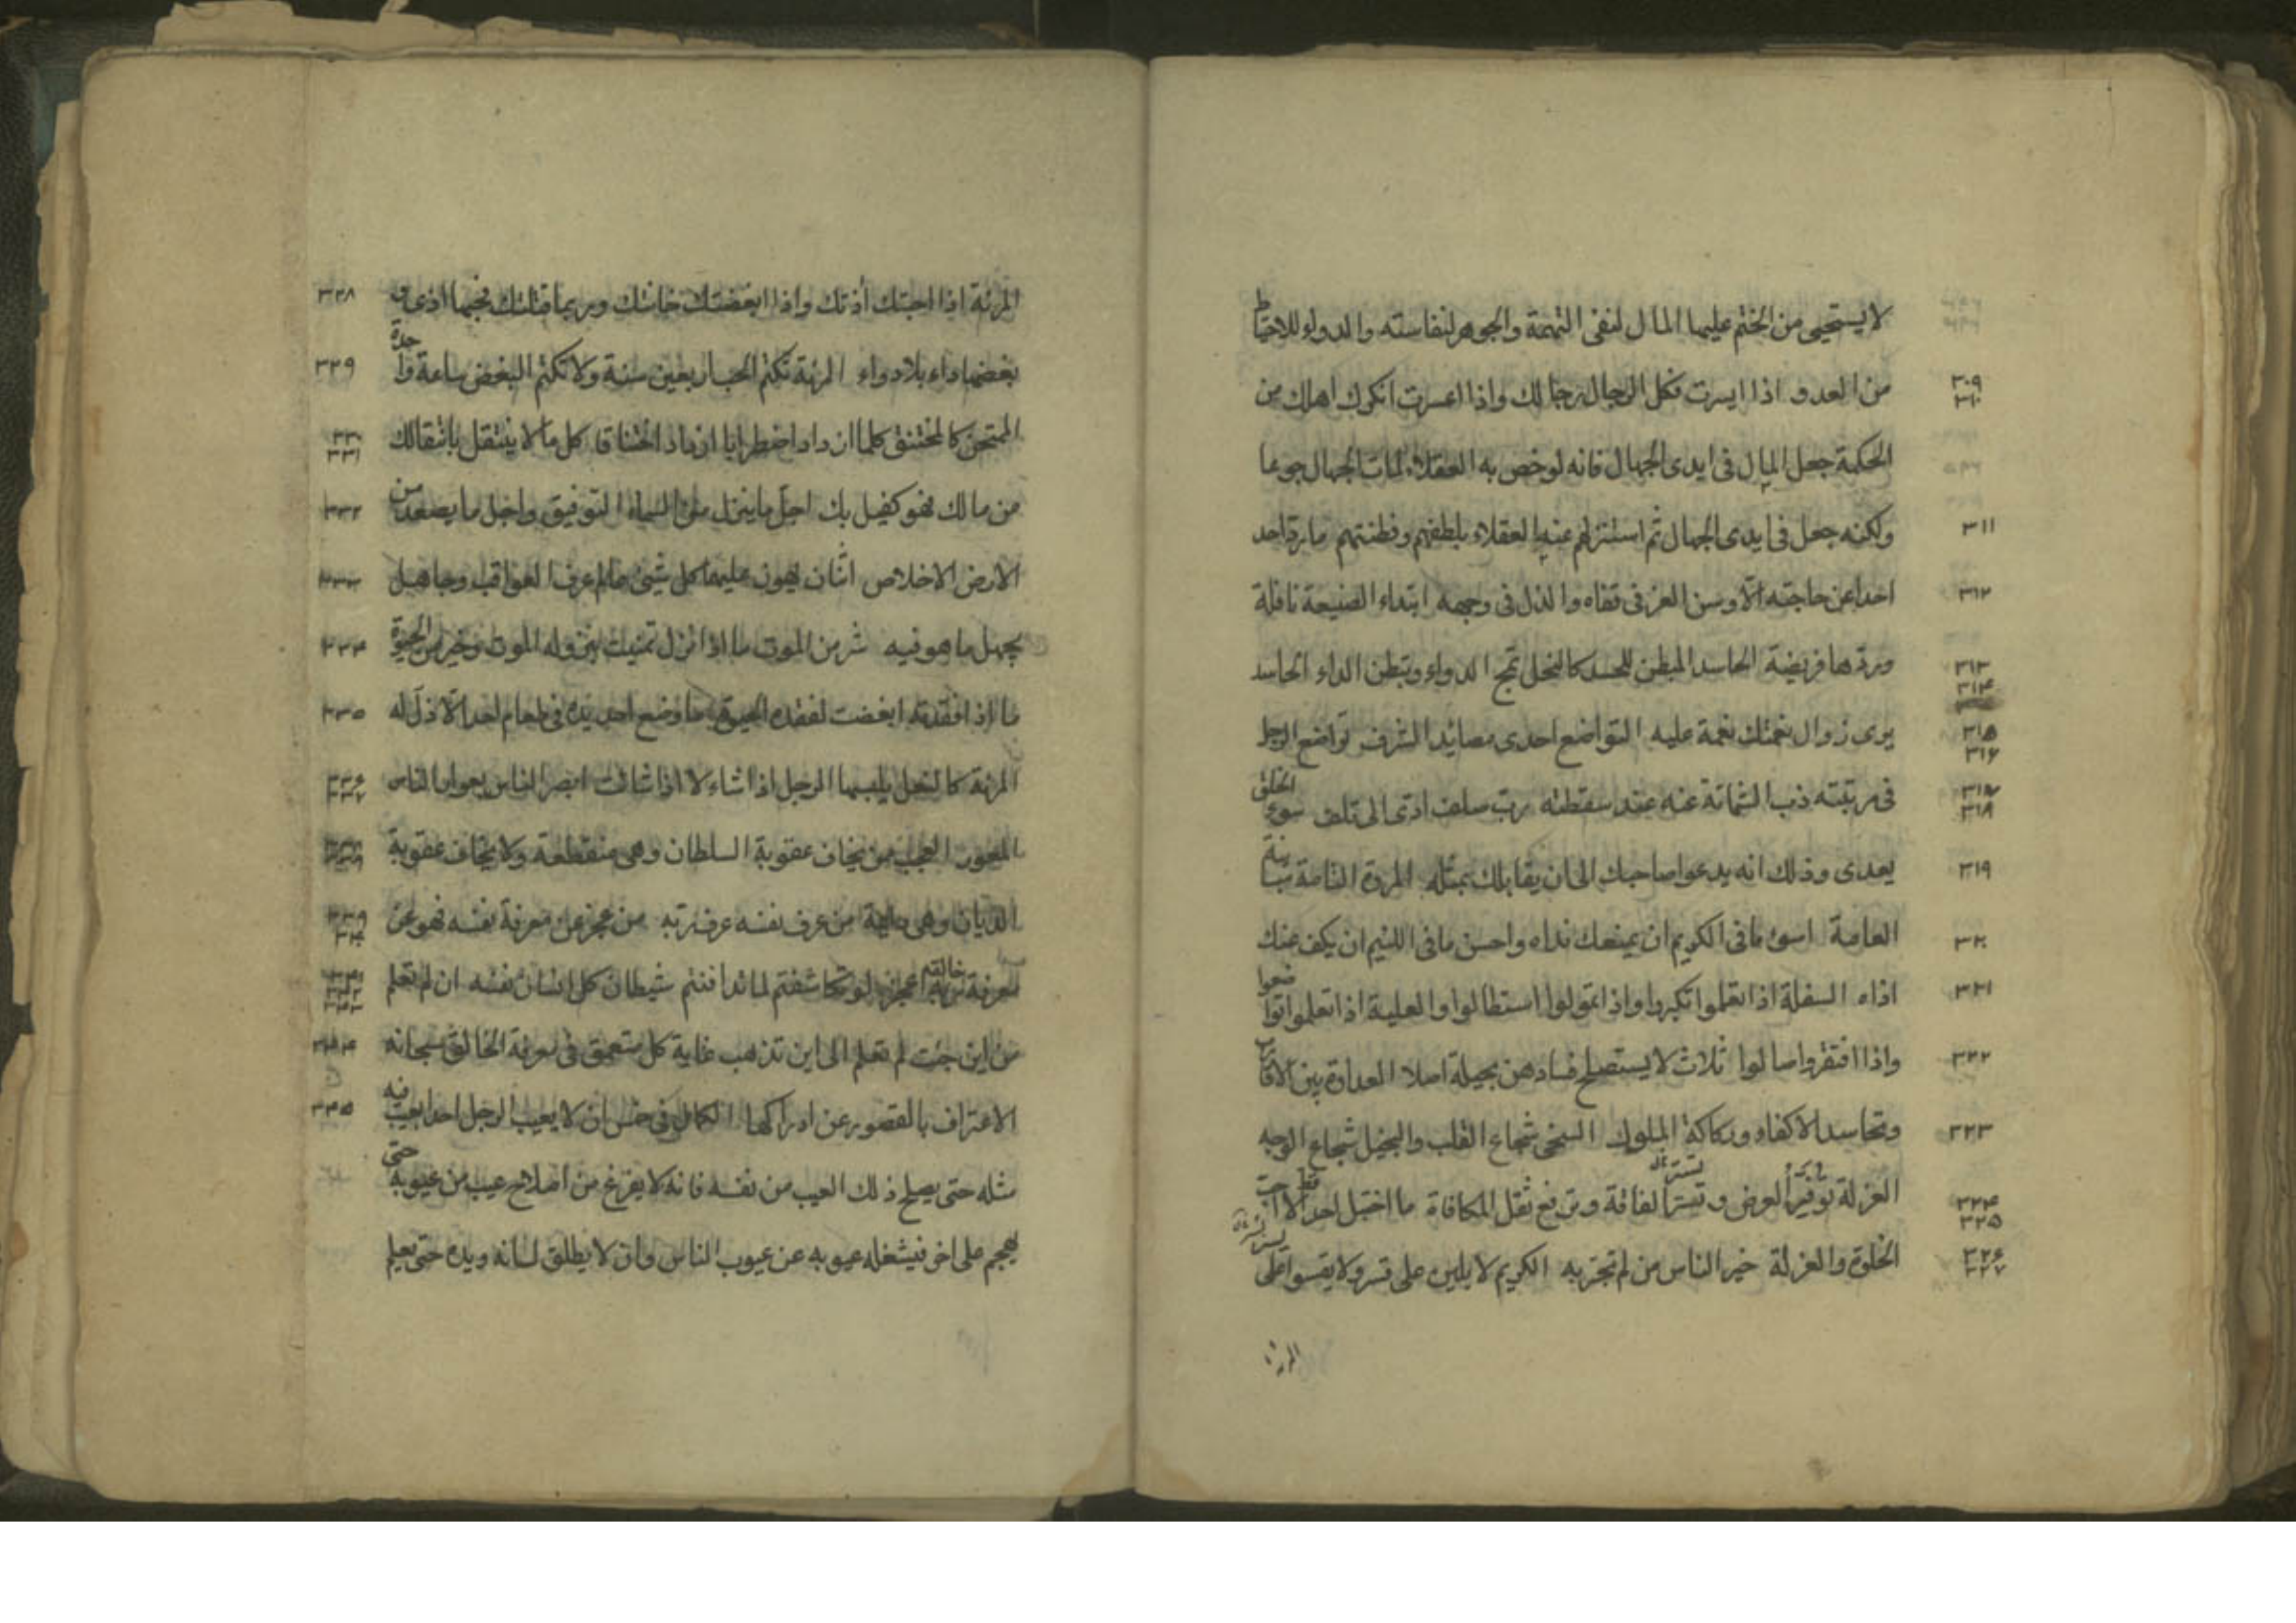 لا يستحيى من الختم عليها المال لنفى التهمة والجوهر لنفاسته والدواء للاحتياط
٣٠٩ من العدو اذا ايسرت فكل الرجال رجالك واذا اعسرت انكرك اهلك من
٣١٠
الحكمة جعل المال فى ايدى الجهال فانه لو خص به العقلاء لمات الجهال جوعا
٣١١ ولكنه جعل فى ايدى الجهال ثم استنزلهم عنه العقلاء بلطفهم وفطنتهم ما رد احد
٣١٢ احدا عن حاجته الا وسن العز فى قفاه والذل فى وجهه ابتداء الصنيعة نافلة
٣١٣ وردها فريضة الحاسد المبطن للحسد كالنحل تمج الدواء وتبطن الداء الحاسد
٣١٤
٣١٥ يرى زوال نعمتك نعمة عليه التواضع احدى مصائد الشرف تواضع الرجل
٣١٦
٣١٧ فى مرتبته ذب الشماتة عنه عند سقطته رب صلف ادى الى تلف سوء الخلق
٣١٨
٣١٩ يعدى وذلك انه يدعوا صاحبك الى ان يقابلك بمثله المروة التامة
٣٢٠ العامة اسوء ما فى الكريم ان يمنعك نداه واحسن ما فى اللئيم ان يكف عنك
٣٢١ اذاه السفلة اذا تعلموا تكبروا واذا تمولوا استطالوا والعلية اذا تعلموا تواضعوا
٣٢٢ واذا افتقروا صالوا ثلاث لا يستصلح فسادهن بحيلة اصلا العداوة بين الاقارب
٣٢٣ وتحاسد الاكفاء وركاكة الملوك السخى شجاع القلب والبخيل شجاع الوجه
٣٢٤ العزلة توفير العرض وتستر الفاقة وترفع ثقل المكافاة ما احتبل احد قط الا احب
٣٢٥
٣٢٦ الخلوة والعزلة خير الناس من لم تجربه الكريم لا يلين على قسر ولا يقسوا على
٣٢٧
المرئة اذا احبتك أذتك واذا ابغضتك خانتك وربما قتلتك فحبها اذى و ٣٢٨
بغضها داء بلا دواء المرئة تكتم الحب اربعين سنة ولا تكتم البغض ساعة واحدة ٣٢٩
الممتحن كالمختنق كلما ازداد اضطرابا ازداد اختناقا كل ما لا ينتقل بانتقالك ٣٣٠
٣٣١
من مالك فهو كفيل بك اجل ما ينزل من السماء التوفيق واجل ما يصعد من ٣٣٢
الارض الاخلاص اثنان يهون عليهما كل شيئ عالم عرف العواقب وجاهل ٣٣٣
يجهل ما هو فيه شر من الموت ما اذا نزل تمنيت بنزوله الموت وخير من الحيوة ٣٣٤
ما اذا فقدته ابغضت لفقده الحيوة ما وضع احد يده فى طعام احد الا ذل له ٣٣٥
المرئة كالنعل يلبسها الرجل اذا شاء لا اذا شائت ابصر الناس بعوار الناس ٣٣٦
٣٣٧
المعور العجب من يخاف عقوبة السلطان وهى منقطعة ولا يخاف عقوبة
الديان وهى دائمة من عرف نفسه عرف ربه من عجز عن معرفة نفسه فهو عن ٣٣٩
٣٤٠
معرفة خالقه اعجز لو تكاشفتم لما تدافنتم شيطان كل انسان نفسه ان لم تعلم
من اين جئت لم تعلم الى اين تذهب غاية كل متعمق فى معرفة الخالق سبحانه ٣٤٤
الاعتراف بالقصور عن ادراكها الكمال فى خمس ان لا يعيب الرجل احدا بعيب فيه ٣٤٥
مثله حتى يصلح ذلك العيب من نفسه فانه لا يفرغ من اصلاح عيب من عيوبه حتى
يهجم على اخر فيشغله عيوبه عن عيوب الناس وان لا يطلق لسانه ويده حتى يعلم